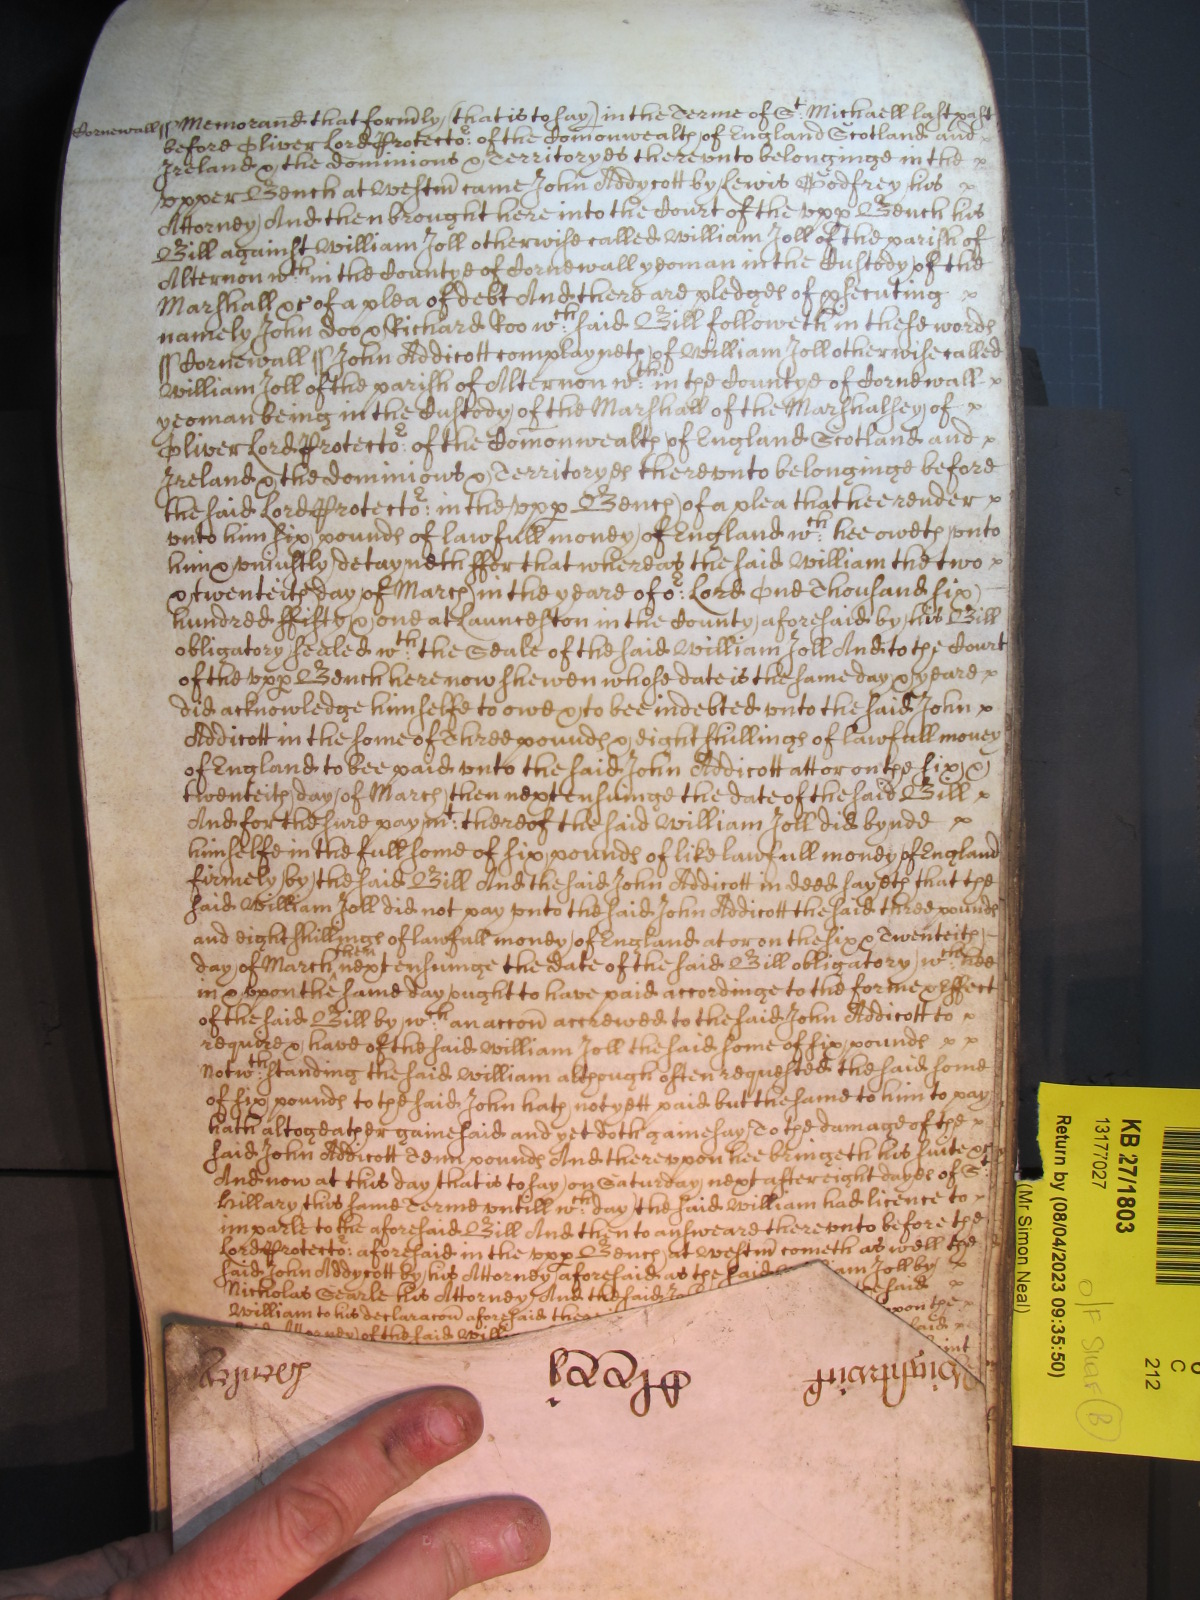 Cornewall ss Memorand that formly (that is to say) in the Terme of St Michaell last past
before Oliver Lord Protector of the Comonwealth of England Scotland and
Ireland & the dominions & Territoryes therevnto belonginge in the
vpper Bench at Westm came John Addycott by Lewis Godfrey his
Attorney And then brought here into the Court of the vpp Bench his
Bill against William Joll otherwise called William Joll of the parish of
Alternon wth in the Countye of Cornewall yeoman in the Custody of the
Marshall &c of a plea of debt And there are pledges of psecuting
namely John Doo & Richard Roo wch said Bill followeth in these words
ss Cornewall ss John Addicott complayneth of William Joll otherwise called
William Joll of the parish of Alternon wth in the Countye of Cornewall
yeoman being in the Custody of the Marshall of the Marshalsey of
Oliver Lord Protector of the Comonwealth of England Scotland and
Ireland & the dominions & Territoryes therevnto belonginge before
the said Lord Protector in the vpp Bench of a plea that hee render
vnto him six pounds of lawfull money of England wch hee oweth vnto
him & vniustly detayneth ffor that whereas the said William the two
& twenteith day of March in the yeare of or Lord One Thousand six
hundred ffifty & one at Launceston in the County aforesaid by his Bill
obligatory sealed wth the Seale of the said William Joll And to the Court
of the vpp Bench here now shewen whose date is the same day & yeare
did acknowledge himselfe to owe & to bee indebted vnto the said John
Addicott in the some of Three pounds & eight shillings of lawfull money
of England to bee paid vnto the said John Addicott att or on the six &
twenteith day of March then next ensuinge the date of the said Bill
And for the sure paymt thereof the said William Joll did bynde
himselfe in the full some of six pounds of like lawfull money of England
firmely by the said Bill And the said John Addicott in deed sayeth that the
said William Joll did not pay vnto the said John Addicott the said three pounds
and eight shillings of lawfull money of England at or on the six & Twenteith
day of March then next ensuinge the date of the said Bill obligatory wch hee
in & vpon the same day ought to have paid accordinge to the forme & effect
of the said Bill by wch an accon accrewed to the said John Addicott to
require & have of the said William Joll the said some of six pounds
Notwthstanding the said William although often requested the said some
of six pounds to the said John hath not yett paid but the same to him to pay
hath altogeather gainesaid and yet doth gainesay To the damage of the
said John Addicott Tenn pounds And therevpon hee bringeth his suite &c
And now at this day that is to say on Saturday next after eight dayes of St
Hillary this same Terme vntill wch day the said William had licence to
imparle to the aforesaid Bill And then to answeare therevnto before the
Lord Protector aforesaid in the vpp Bench at Westm cometh as well the
said John Addycott by his Attorney aforesaid as the said William Joll by
Nicholas Searle his Attorney And the said the said
William to his declaracon aforesaid vpon the
Attorney of the said Will said
KB 27/1803
1317702
Return by (08/04/2023 09:35:50)
(Mr Simon Neal)
C
212
B